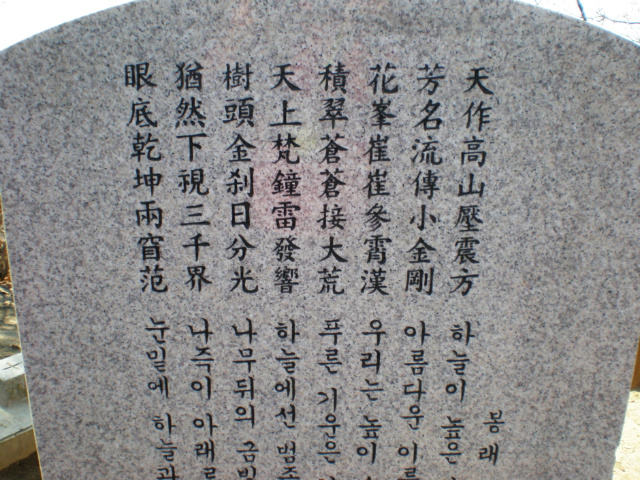 天作高山壓震方
芳名流傳小金剛
花峯崔崔參霄漢
積翠蒼蒼接大荒
天上梵鐘雷發響
樹頭金刹日分光
猶然下視三千界
眼底乾坤兩窅范
봉래
하늘이 높은
아름다운 이름
우리는 높이
푸른 기운은
하늘에선 범종
나무뒤의 금빛
나즉이 아래로
눈밑에 하늘과